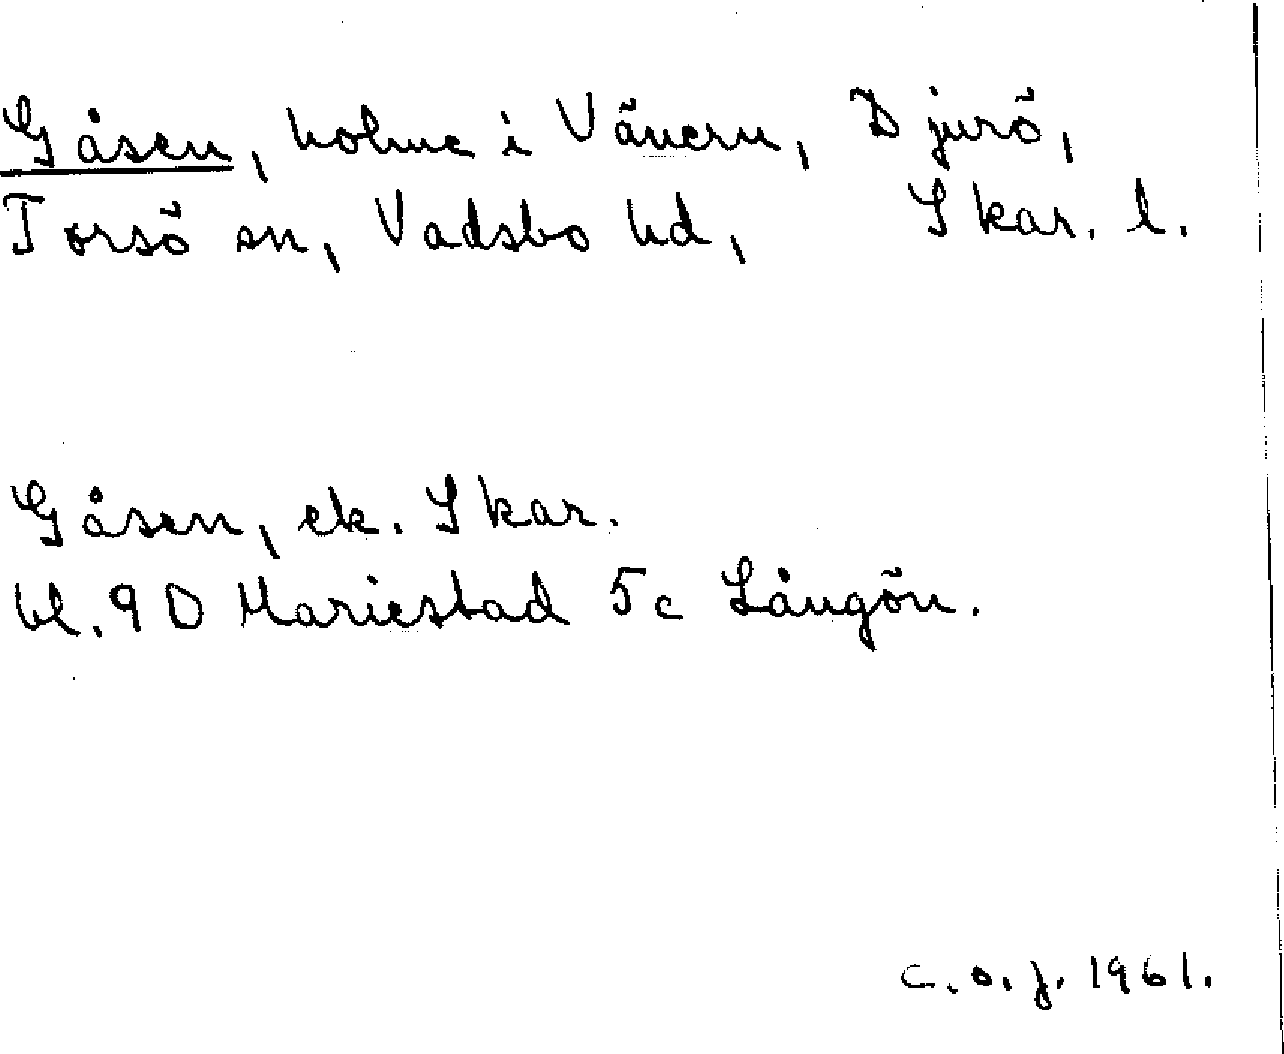 Gåsen, holme i Vänern, Djurö,
Torsö sn, Vadsbo hd, Skar. l.
Gåsen, ek. Skar.
bl. 9D Mariestad 5c Långön.
C.O.J. 1961.